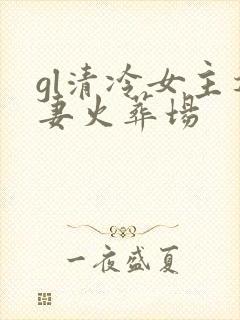 gl清冷女主
妻火葬場
一夜盛夏